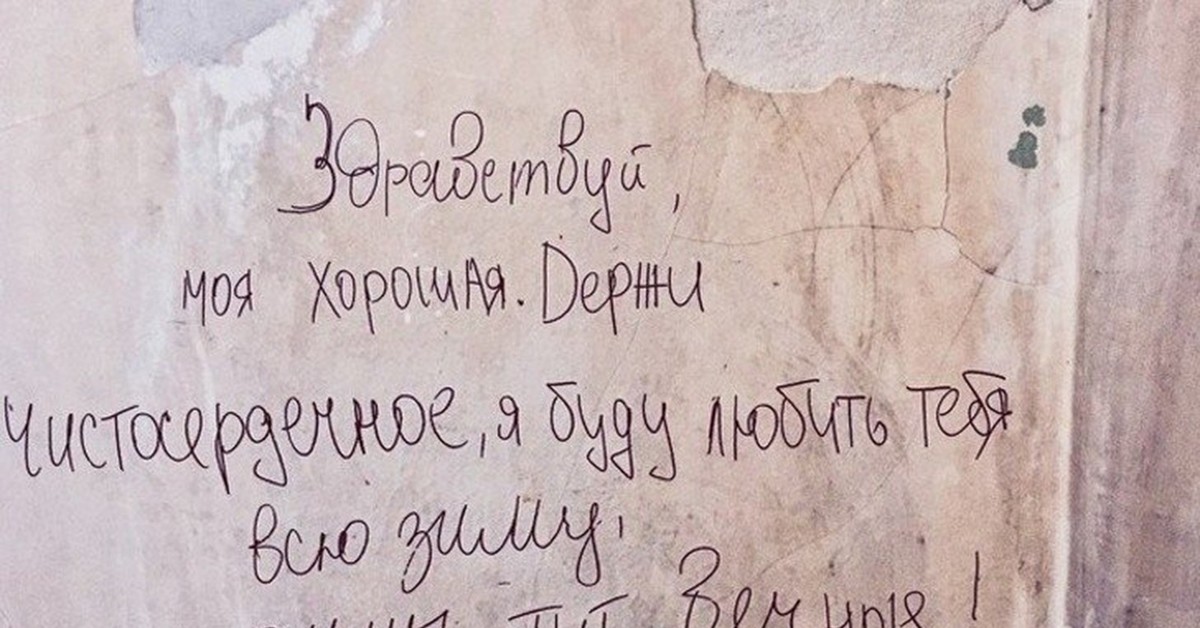 Здравствуй,
моя хорошая. Держи
чистосердечное, я буду любить тебя
всю зиму,